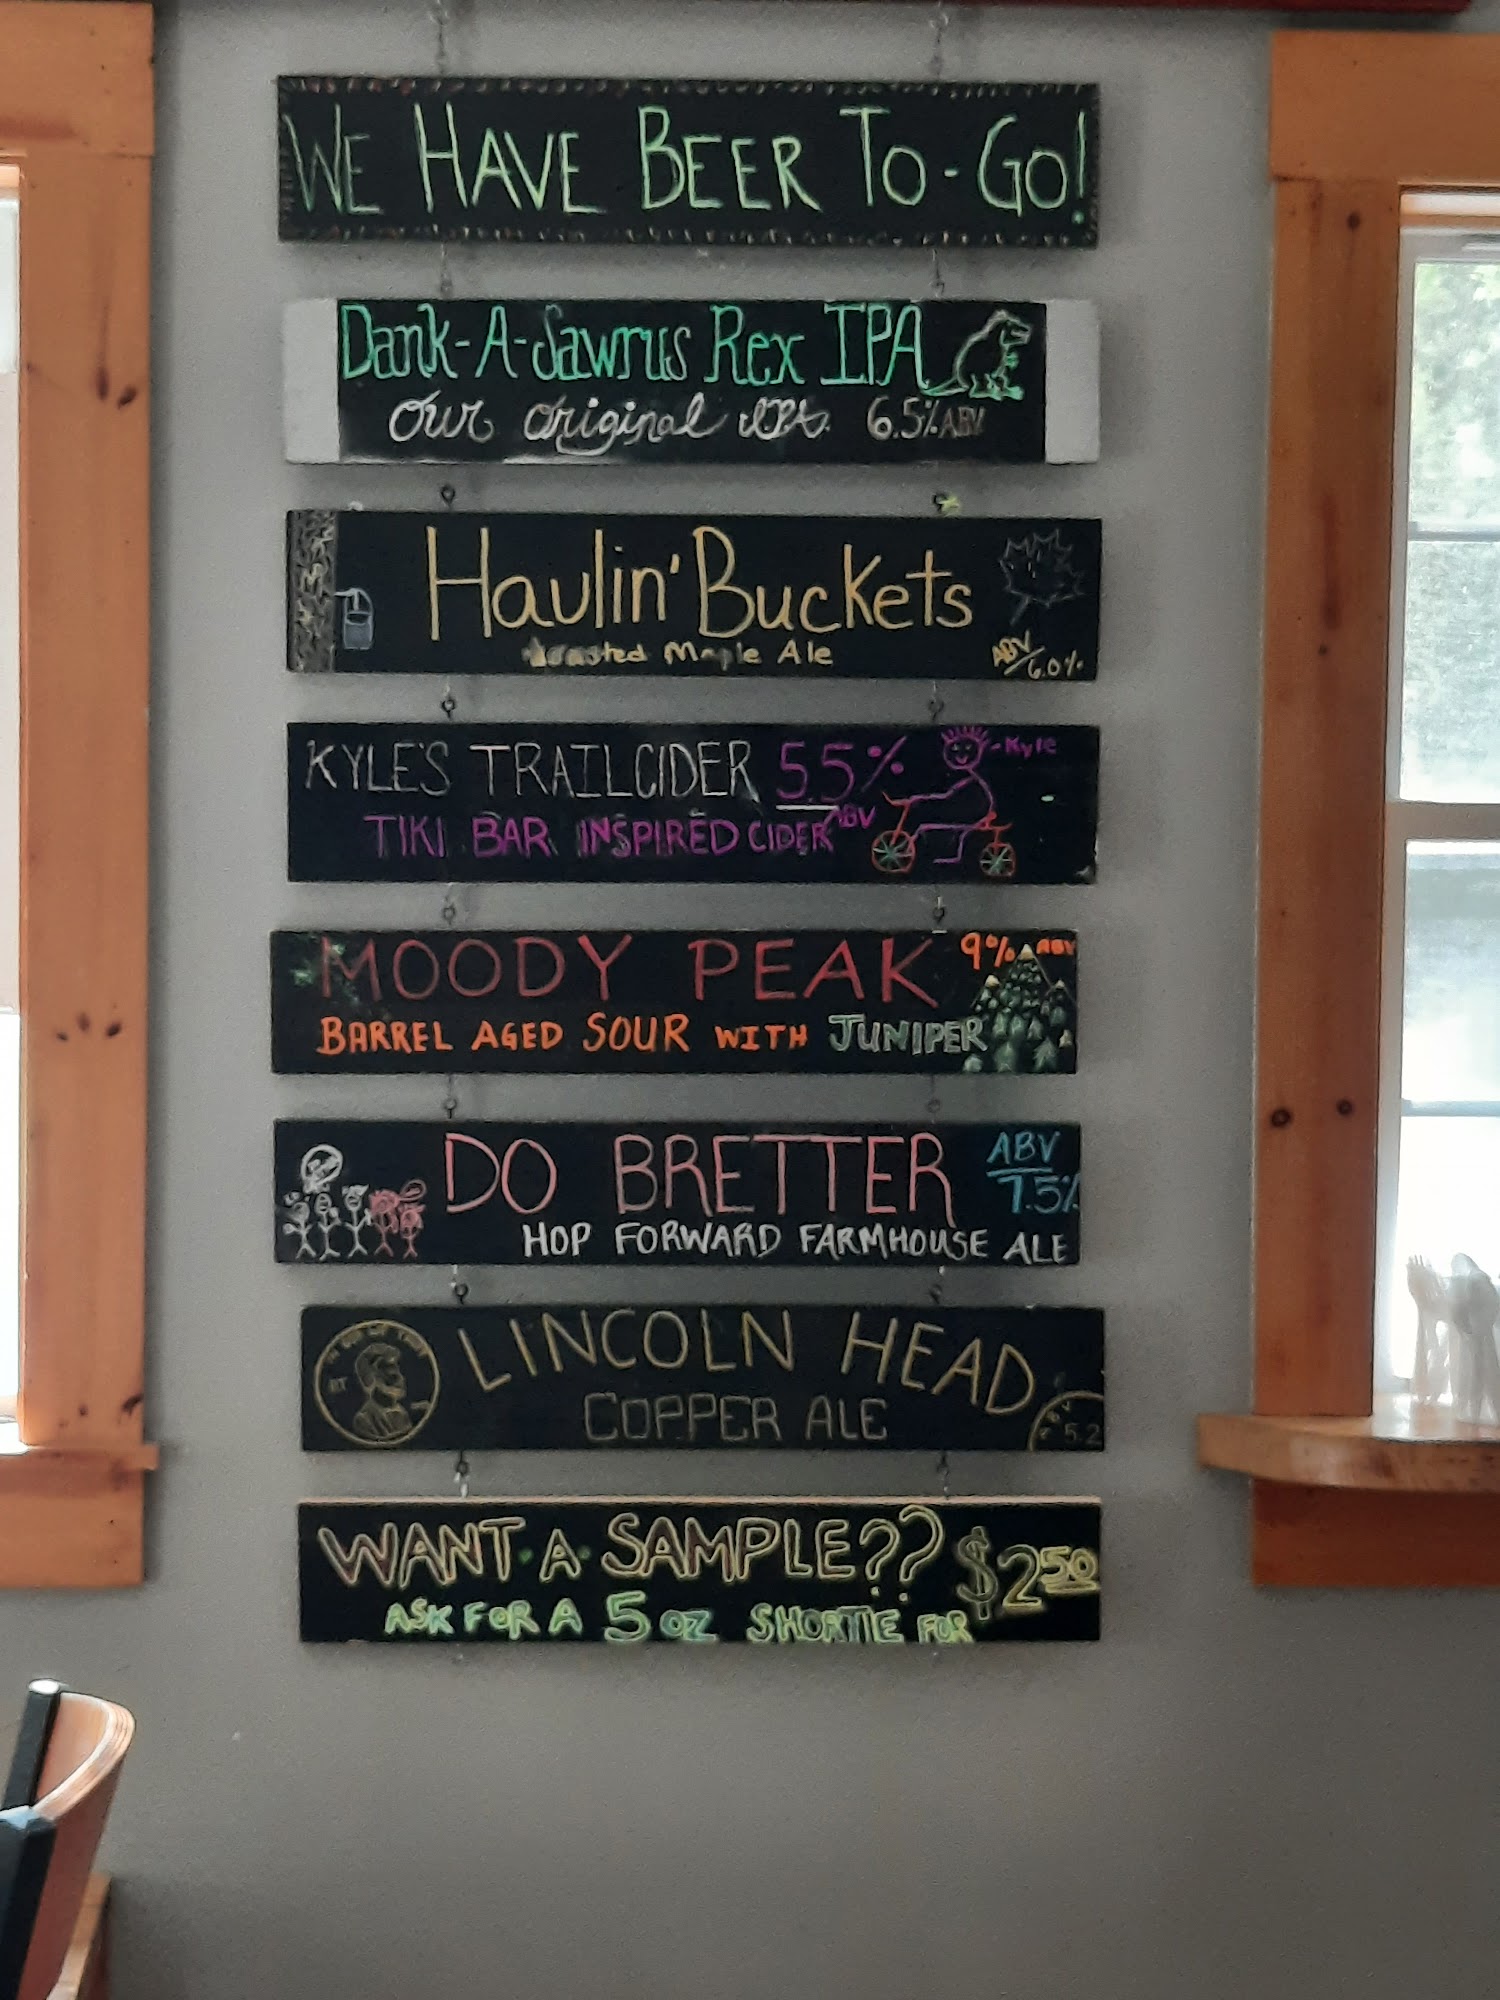 WE HAVE BEER TO-GO!
Dank-A-Sawrus Rex IPA
our original IPA 6.5% ABV
Haulin' Buckets
Maple Ale
ABV/6.0%
KYLE'S TRAILCIDER 5.5% ABV
-Kyle
TIKI BAR INSPIRED CIDER
MOODY PEAK 9% ABV
BARREL AGED SOUR WITH JUNIPER
DO BRETTER ABV 7.5%
HOP FORWARD FARMHOUSE ALE
LINCOLN HEAD
COPPER ALE
ABV 5.2
WANT A SAMPLE?? $2.50
ASK FOR A 5 OZ SHORTIE FOR